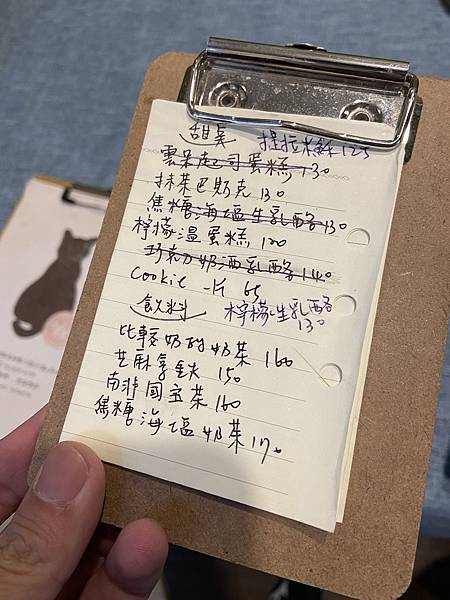 甜點 提拉米穌 125
雲朵起司蛋糕 130
抹茶巴斯克 130
焦糖海塩生乳酪 130
檸檬溫蛋糕 120
巧克力奶酒乳酪 140
Cookie 一片 65
飲料 檸檬生乳酪
130
比較奶的奶茶 160
芝麻拿鉄 150
南非國宝茶 160
焦糖海塩奶茶 170